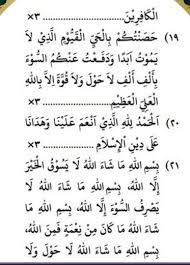 الْكَافِرِيْنَ ............................ ×٣
(١٩) حَصَّنْتُكُمْ بِالْحَيِّ الْقَيُّوْمِ الَّذِيْ لَا
يَمُوْتُ أَبَدًا وَدَفَعْتُ عَنْكُمُ السُّوْءَ
بِأَلْفِ أَلْفِ لَا حَوْلَ وَلَا قُوَّةَ إِلَّا بِاللهِ
الْعَلِيِّ الْعَظِيْمِ ............................ ×٣
(٢٠) اَلْحَمْدُ لِلّٰهِ الَّذِيْ أَنْعَمَ عَلَيْنَا وَهَدَانَا
عَلَى دِيْنِ الْإِسْلَامِ ............................ ×٣
(٢١) بِسْمِ اللهِ مَا شَاءَ اللهُ لَا يَسُوْقُ الْخَيْرَ
إِلَّا اللهُ، بِسْمِ اللهِ مَا شَاءَ اللهُ لَا
يَصْرِفُ السُّوْءَ إِلَّا اللهُ، بِسْمِ اللهِ مَا
شَاءَ اللهُ مَا كَانَ مِنْ نِعْمَةٍ فَمِنَ اللهِ،
بِسْمِ اللهِ مَا شَاءَ اللهُ لَا حَوْلَ وَلَا